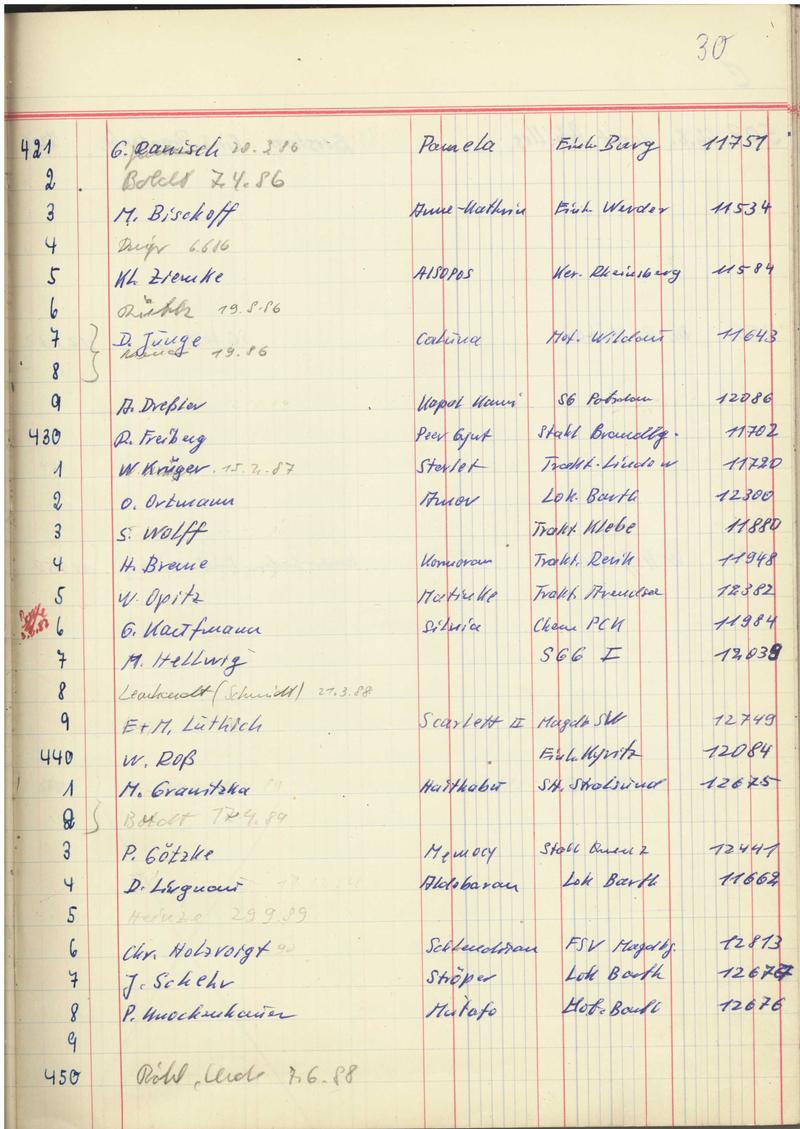 30
421 G. Ranisch 20.3.86 Pamela Einh. Burg 11751
2 Boldt 7.4.86
3 M. Bischoff Anne-Kathrin Einh. Werder 11534
4 6.6.86
5 Kl. Ziemke AISOPOS Ker. Rheinsberg 11584
6 19.8.86
7 D. Junge Catrina Mot. Wildau 11643
19.86
8
9 A. Dreßler SG Potsdam 12086
430 R. Freiberg Peer Gynt Stahl Brandbg. 11702
1 W. Krüger 15.2.87 Starlet Trakt. Lindow 11720
2 O. Ortmann Amor Lok. Barth 12300
3 S. Wolff Trakt. Klebe 11880
4 H. Breme Kormoran Trakt. Rerik 11948
5 W. Opitz Matinke Trakt. Arendsee 12382
6 G. Kauffmann Silvia Chem PCK 11984
7 M. Hellwig SGG I 12039
8 Leonhardt (Schmidt) 21.3.88
9 E+M. Lüthich Scarlett II Magdb SW 12749
440 W. Roß Einh. Kyritz 12084
1 M. Granitzka Haithabu SH. Stralsund 12675
2 Boldt 17.4.89
3 P. Götzke Memory Stahl Quenz 12441
4 D. Aldebaran Lok Barth 11662
5 Heinze 29.9.89
6 Chr. Holzvoigt FSV Magdbg. 12813
7 J. Schehr Ströper Lok Barth
8 P. Knockenhauer Mutafo Barth 12676
9
450 Röhl, 7.6.88